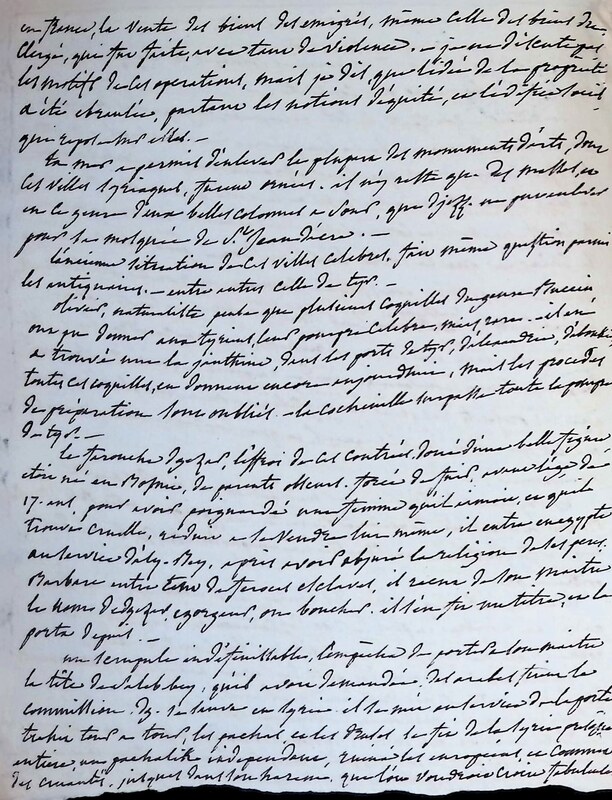 en france, la vente des biens des emigrés, même celle des biens du
Clergé, qui fut faite, avec tant de violence. — je ne discute pas
les motifs de ces operations, mais je dis que l'idée de la propriété
a été ebranlée, partant les notions d'équité, et l'édifice social
qui repose sur elles. —
la mer a permis d'enlever la plupart des monuments d'arts, dont
ces villes syriaques, furent ornées. il n'y reste que des
en ce genre deux belles colonnes a Sour, que Djezz.
pour sa mosquée de St. Jean d'acre. —
l'ancienne situation de ces villes celebres, fait même question parmi
les antiquaires. — entre autres celle de tyr. —
olivier, naturaliste pense que plusieurs coquilles du genre Buccin
ont pu donner aux tyriens, leur pourpre celebre, mais, rare. il
a trouvé une la janthine, dans les ports de tyr, d'alexandrie, d'abouk.
toutes ces coquilles, en donnent encore aujourdhui, mais les procedés
de préparation sont oubliés. la cochenille surpasse toute la pourpre
de tyr. —
le farouche djezzar, l'effroi de ces contrées, doué d'une belle figure
etoit né en Bosnie, de parents obscurs. forcé de fuir, avant l'âge de
17. ans, pour avoir poignardé une femme qu'il aimoit, et qu'il
trouva cruelle, reduit a se vendre lui même, il entre en egypte
au service d'aly-Bey, après avoir abjuré la religion de ses peres.
Barbare entre tous de feroces esclaves, il recut de son maitre
le nom de djezzar, egorgeur, ou boucher. il s'en fit un titre, et le
porta depuis. —
un scrupule indéfinissable, l'empêcha de porter a son maitre
la tête de Saleh bey, qu'il avoit demandée. des arabes, firent la
commission. dj. se sauve en syrie. il se mit au service de la porte
trahit tour a tour, les pachas, et les Druses. se fit de la Syrie presque
entiere un pachalik independant, ruina les européens, et commit
des cruautés, jusques dans son harem. que l'on voudroit croire fabuleuses